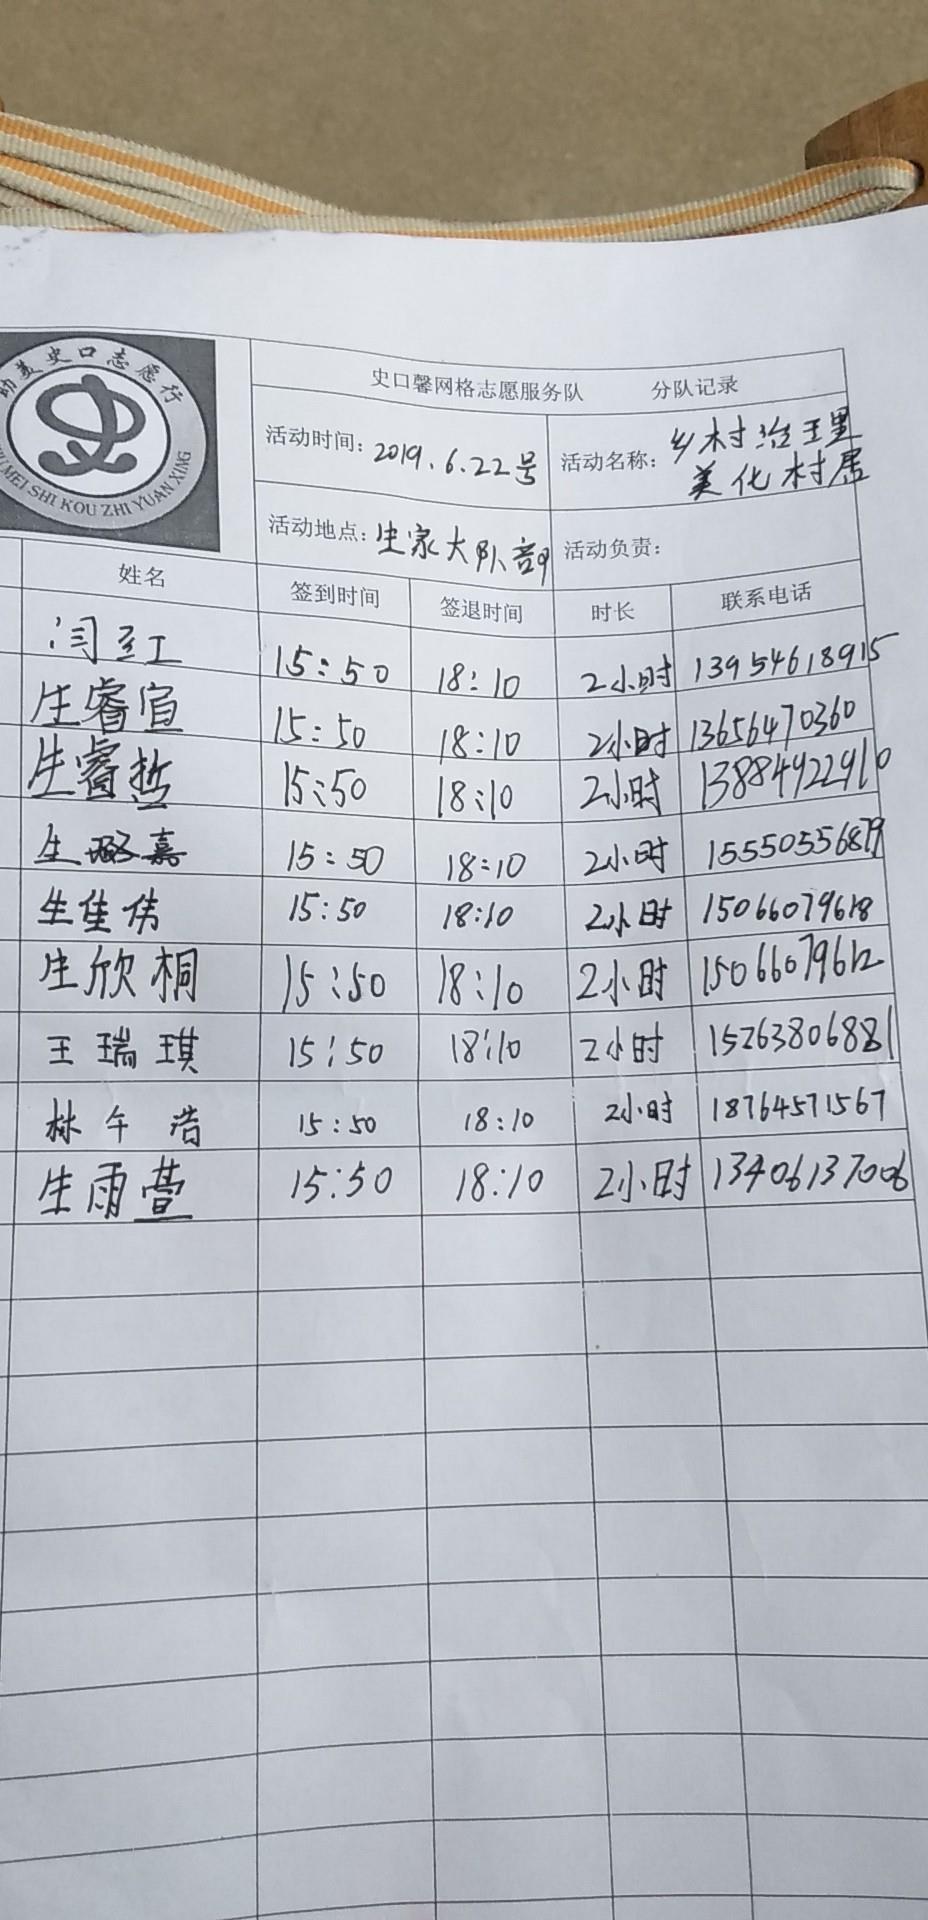 助美史口志愿行
ZHU MEI SHI KOU ZHI YUAN XING
史口馨网格志愿服务队 分队记录
活动时间: 2019.6.22号 活动名称: 乡村治理 美化村居
活动地点: 生家大队部 活动负责:
姓名 签到时间 签退时间 时长 联系电话
闫红 15:50 18:10 2小时 13954618915
生睿宣 15:50 18:10 2小时 13656470360
生睿哲 15:50 18:10 2小时 13884922910
生 嘉 15:50 18:10 2小时 15550556879
生佳伟 15:50 18:10 2小时 15066079618
生欣桐 15:50 18:10 2小时 15066079612
王瑞琪 15:50 18:10 2小时 15263806881
林午浩 15:50 18:10 2小时 18764571567
生雨萱 15:50 18:10 2小时 13406137006